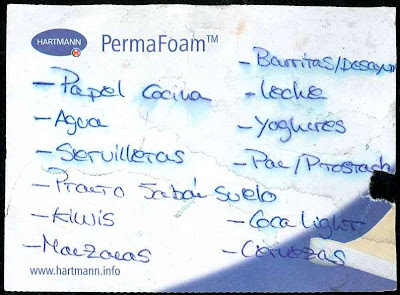 HARTMANN
PermaFoam™
- Papel Cocina
- Agua
- Servilletas
- Practo Sabád Suelo
- Kiwis
- Manzanas
- Barritas/Desayun
- Leche
- Yoghures
- Pan/
- Coca light
- Cervezas
www.hartmann.info